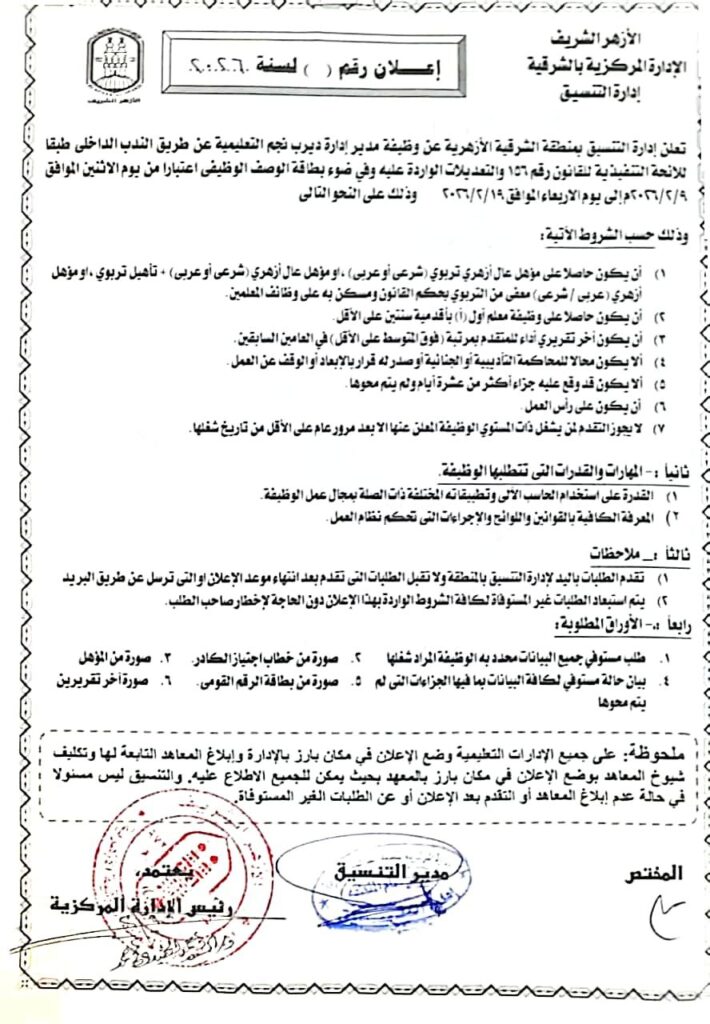 الأزهر الشريف
الإدارة المركزية بالشرقية
إدارة التنسيق
إعـــلان رقم (  ) لسنة ٢٠٢٦م
الأزهر الشريف
تعلن إدارة التنسيق بمنطقة الشرقية الأزهرية عن وظيفة مدير إدارة ديرب نجم التعليمية عن طريق الندب الداخلى طبقا
للائحة التنفيذية للقانون رقم ١٥٦ والتعديلات الواردة عليه وفي ضوء بطاقة الوصف الوظيفى اعتبارا من يوم الاثنين الموافق
٢٠٢٦/٢/٩م إلى يوم الاربعاء الموافق ٢٠٢٦/٢/١٩ وذلك على النحو التالى
وذلك حسب الشروط الآتية:
١) أن يكون حاصلا على مؤهل عال أزهري تربوي (شرعى أو عربى) ، او مؤهل عال أزهري (شرعى أو عربى) + تأهيل تربوي ، او مؤهل
أزهري (عربى / شرعى) معفى من التربوي بحكم القانون ومسكن به على وظائف المعلمين.
٢) أن يكون حاصلا على وظيفة معلم أول (أ) بأقدمية سنتين على الأقل.
٣) أن يكون أخر تقريري أداء للمتقدم بمرتبة (فوق المتوسط على الأقل) في العامين السابقين.
٤) ألا يكون محالا للمحاكمة التأديبية أو الجنائية أو صدر له قرار بالإبعاد أو الوقف عن العمل.
٥) ألا يكون قد وقع عليه جزاء أكثر من عشرة أيام ولم يتم محوها.
٦) أن يكون على رأس العمل.
٧) لا يجوز التقدم لمن يشغل ذات المستوي الوظيفة المعلن عنها الا بعد مرور عام على الأقل من تاريخ شغلها.
ثانياً :- المهارات والقدرات التى تتطلبها الوظيفة.
١) القدرة على استخدام الحاسب الآلى وتطبيقاته المختلفة ذات الصلة بمجال عمل الوظيفة.
٢) المعرفة الكافية بالقوانين واللوائح والإجراءات التى تحكم نظام العمل.
ثالثاً :_ ملاحظات
١) تقدم الطلبات باليد لإدارة التنسيق بالمنطقة ولا تقبل الطلبات التى تقدم بعد انتهاء موعد الإعلان او التى ترسل عن طريق البريد
٢) يتم استبعاد الطلبات غير المستوفاة لكافة الشروط الواردة بهذا الإعلان دون الحاجة لإخطار صاحب الطلب.
رابعاً :- الأوراق المطلوبة:
١. طلب مستوفي جميع البيانات محدد به الوظيفة المراد شغلها ٢. صورة من خطاب اجتياز الكادر. ٣. صورة من المؤهل
٤. بيان حالة مستوفي لكافة البيانات بما فيها الجزاءات التى لم ٥. صورة من بطاقة الرقم القومى. ٦. صورة أخر تقريرين
يتم محوها
ملحوظة: على جميع الإدارات التعليمية وضع الإعلان في مكان بارز بالإدارة وإبلاغ المعاهد التابعة لها وتكليف
شيوخ المعاهد بوضع الإعلان في مكان بارز بالمعهد بحيث يمكن للجميع الاطلاع عليه. والتنسيق ليس مسئولا
في حالة عدم إبلاغ المعاهد أو التقدم بعد الإعلان أو عن الطلبات الغير المستوفاة.
المختص
مدير التنسيق
يعتمد،
رئيس الإدارة المركزية